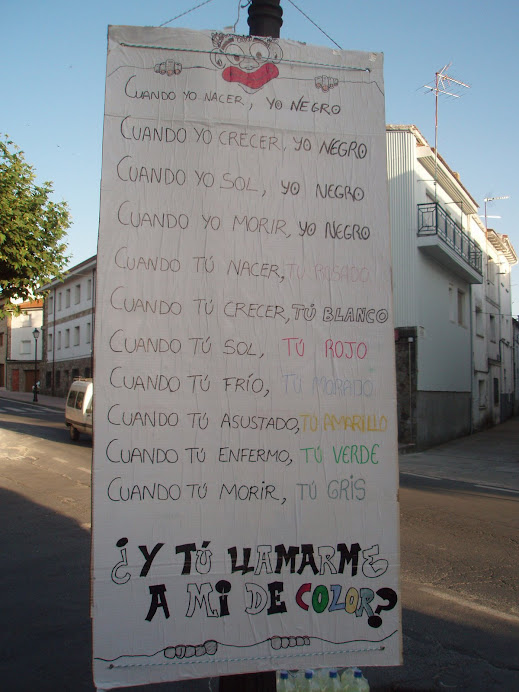 CUANDO YO NACER, YO NEGRO
CUANDO YO CRECER, YO NEGRO
CUANDO YO SOL, YO NEGRO
CUANDO YO MORIR, YO NEGRO
CUANDO TÚ NACER, TÚ ROSADO
CUANDO TÚ CRECER, TÚ BLANCO
CUANDO TÚ SOL, TÚ ROJO
CUANDO TÚ FRÍO, TÚ MORADO
CUANDO TÚ ASUSTADO, TÚ AMARILLO
CUANDO TÚ ENFERMO, TÚ VERDE
CUANDO TÚ MORIR, TÚ GRIS
¿Y TÚ LLAMARME
A MI DE COLOR?